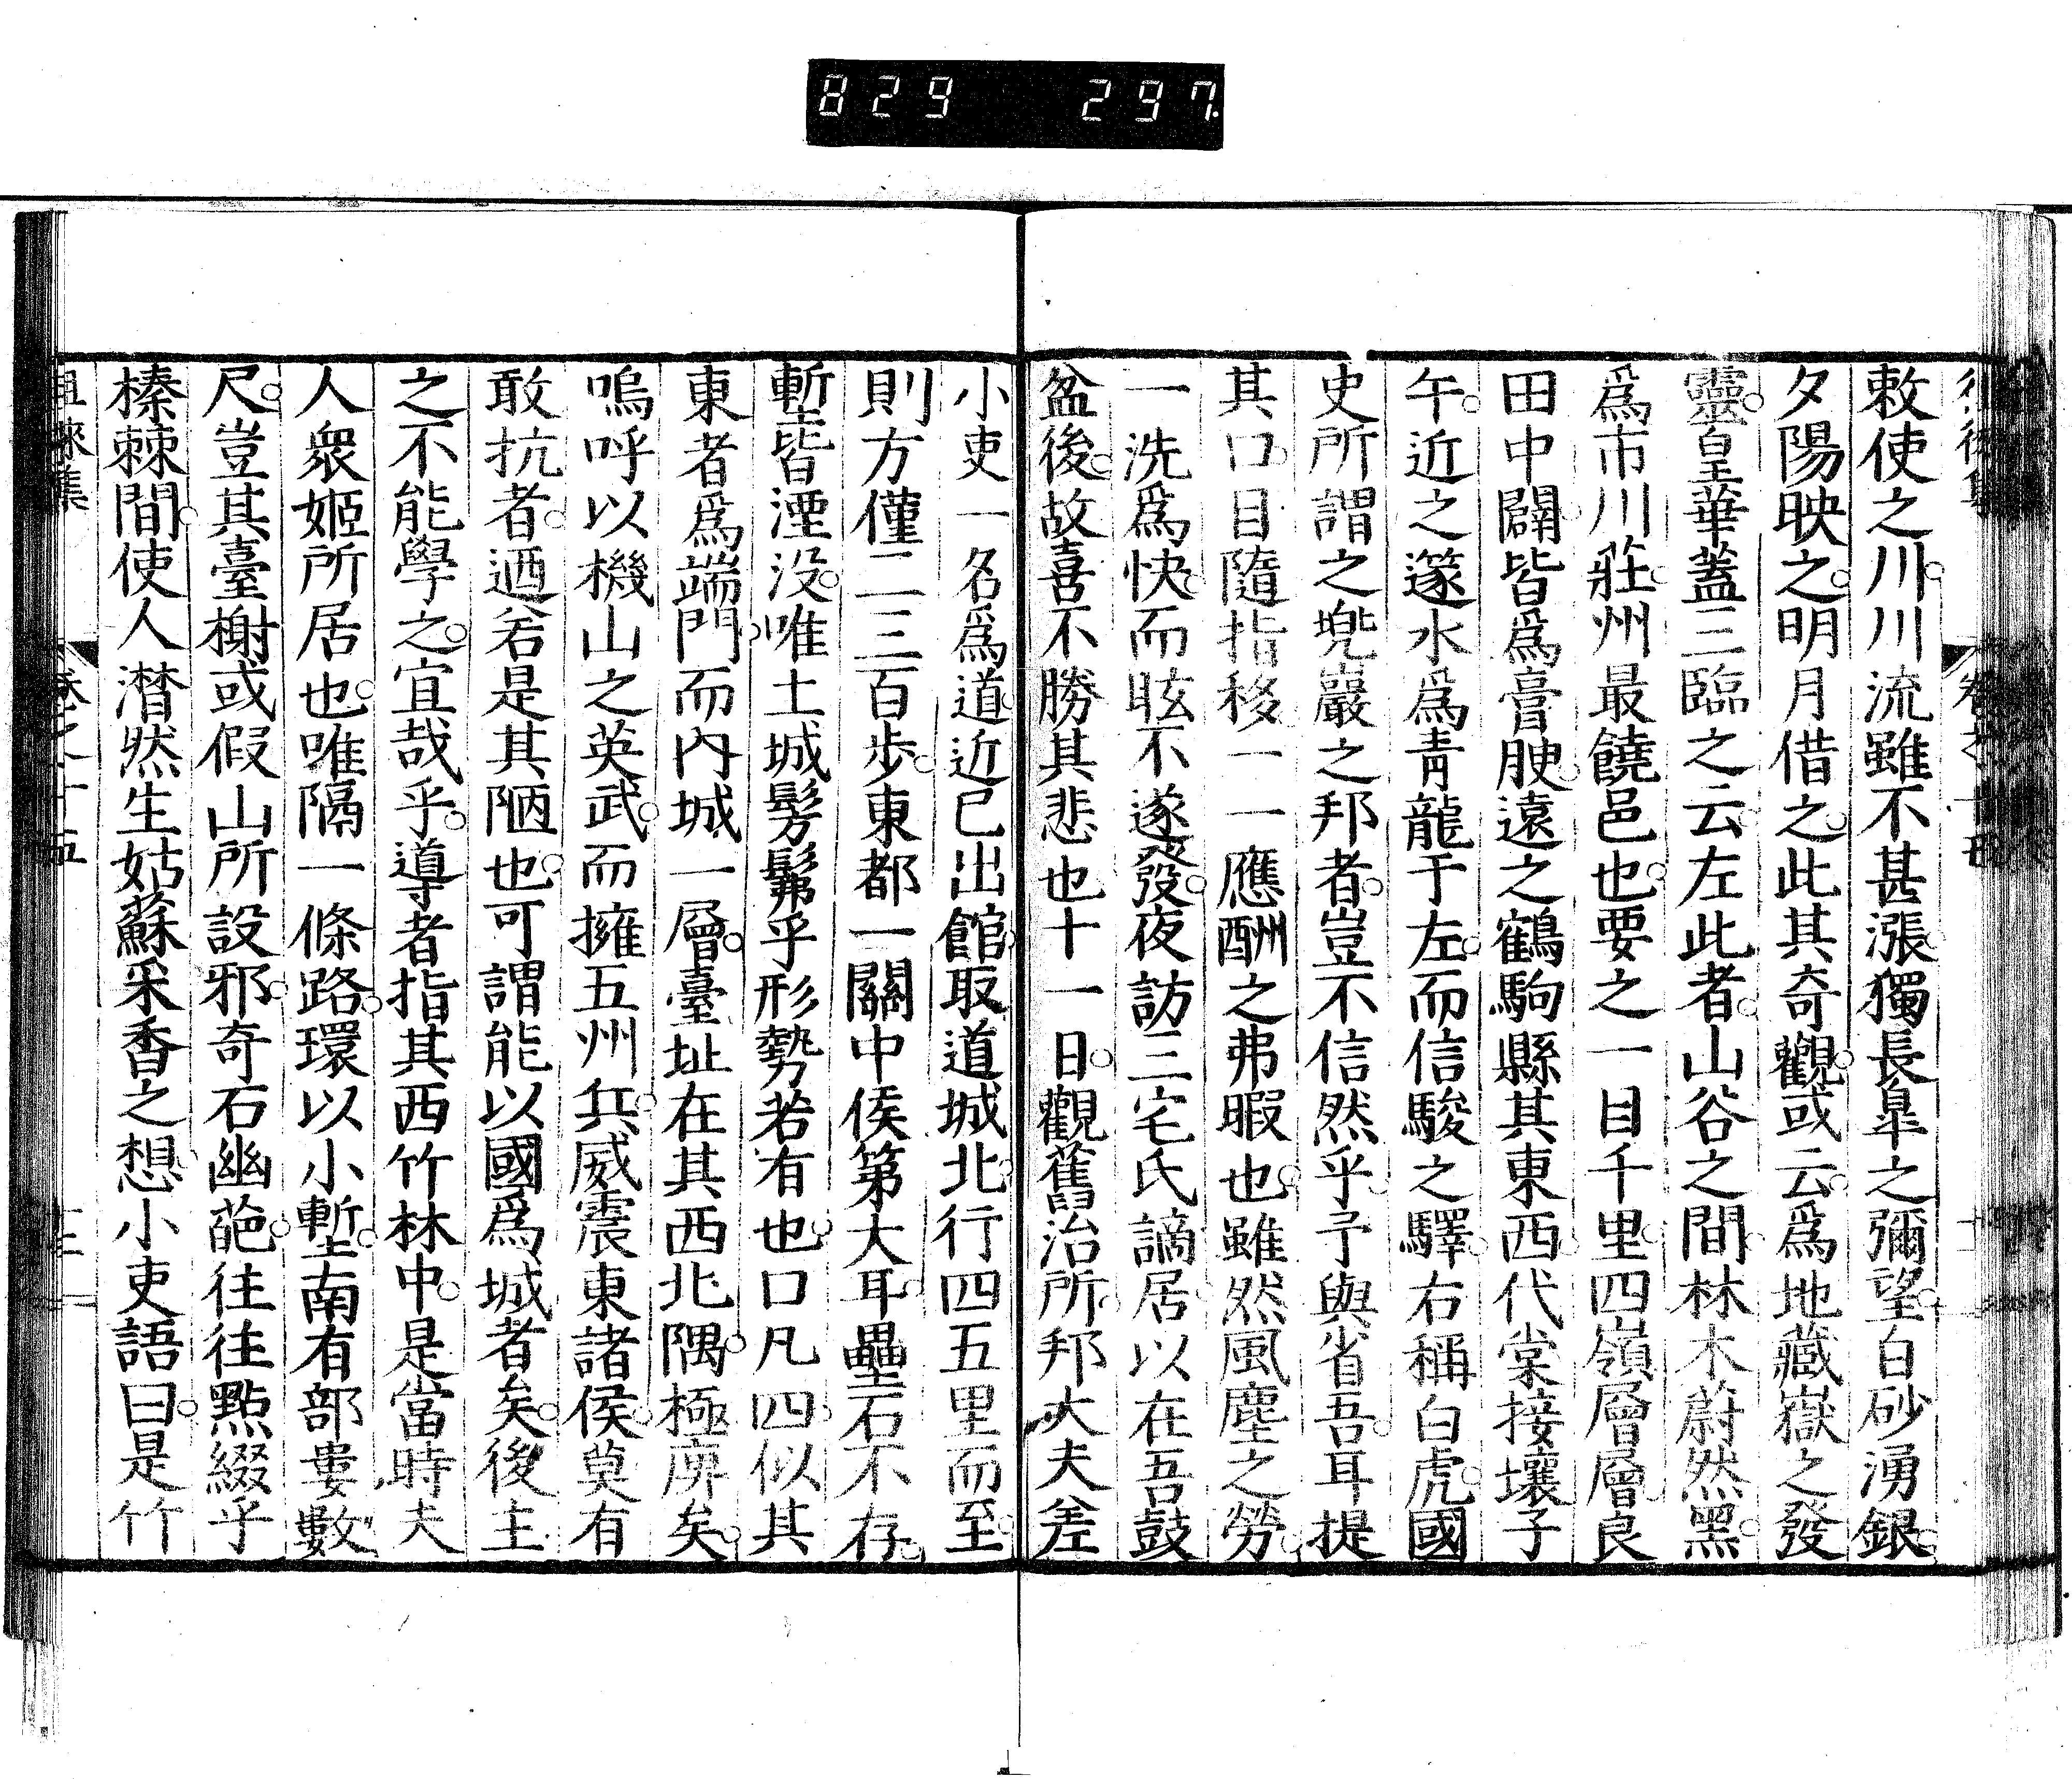 829 297
敕使之川川流雖不甚漲獨長皐之彌望白砂湧銀
夕陽映之明月借之此其奇觀或云爲地藏嶽之發
靈皇華蓋三臨之云左此者山谷之間林木蔚然黑
爲市川莊州最饒邑也要之一目千里四嶺層層良
田中闢皆爲膏腴遠之鶴駒縣其東西代棠接壤子
午近之篴水爲靑龍于左而信駿之驛右稱白虎國
史所謂之兠巖之邦者豈不信然乎予與省吾耳提
其口目隨指移一一應酬之弗暇也雖然風塵之勞
一洗爲快而眩不遂發夜訪三宅氏謫居以在吾鼓
盆後故喜不勝其悲也十一日觀舊治所邦大夫差
小吏一名爲道近已出館取道城北行四五里而至
則方僅二三百步東都一關中侯第大耳壘石不存
塹皆湮没唯土城髣髴乎形勢若有也口凡四似其
東者爲端門而內城一層臺址在其西北隅極庳矣
嗚呼以機山之英武而擁五州兵威震東諸侯莫有
敢抗者迺若是其陋也可謂能以國爲城者矣後主
之不能學之宜哉乎導者指其西竹林中是當時夫
人衆姬所居也唯隔一條路環以小塹南有部婁數
尺豈其臺榭或假山所設邪奇石幽葩往往點綴乎
榛棘間使人潸然生姑蘇采香之想小吏語曰是竹
徂徠集 卷之十五 十三